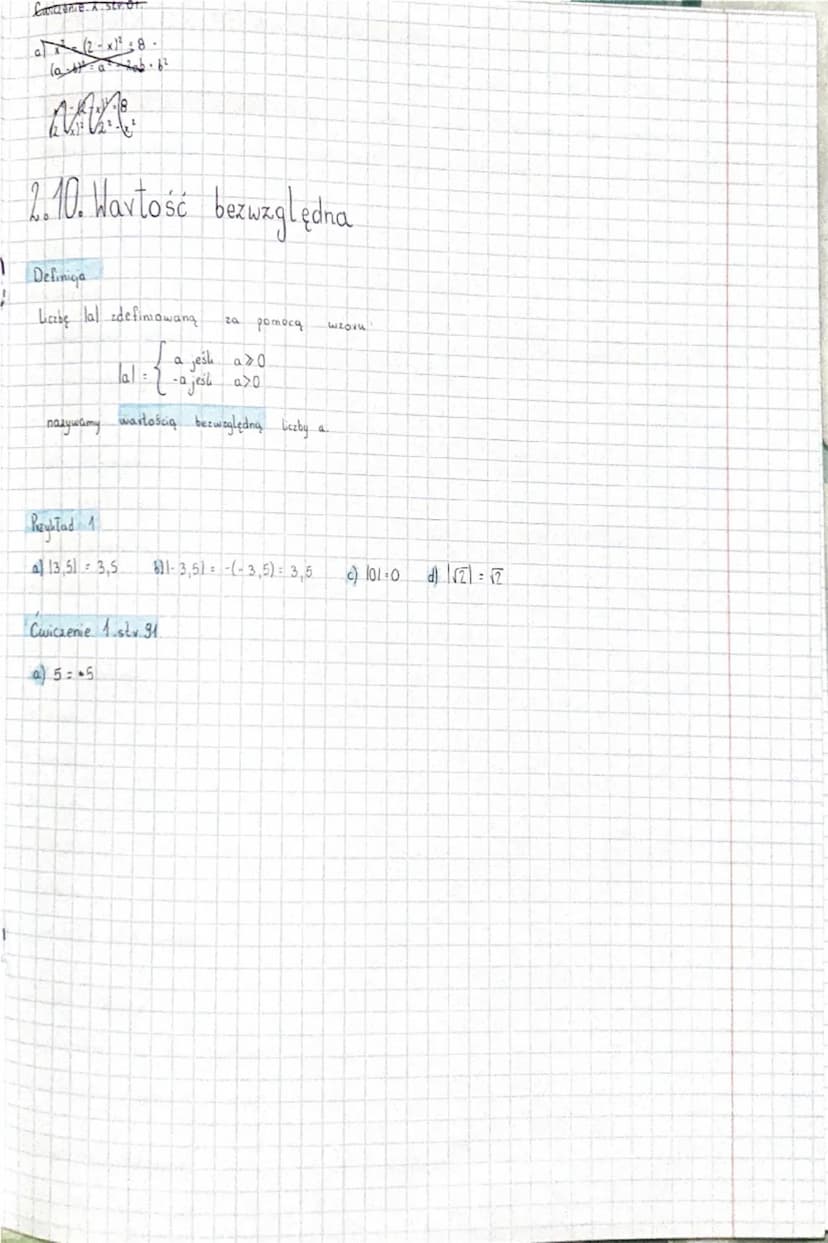 Ćwiczenie. 2. str. 81.
a) x² - (2 - x)² = 8
(a - b)² = a² - 2ab + b²
2.10. Wartość bezwzględna
Definicja
Liczbę |a| zdefiniowaną za pomocą wzoru:
|a| = { a jeśli a ≥ 0
-a jeśli a > 0
nazywamy wartością bezwzględną liczby a.
Przykład 1
a) |3,5| = 3,5 b) |-3,5| = -(-3,5) = 3,5 c) |0| = 0 d) |√2| = √2
Ćwiczenie 1. str. 91
a) 5 = 5